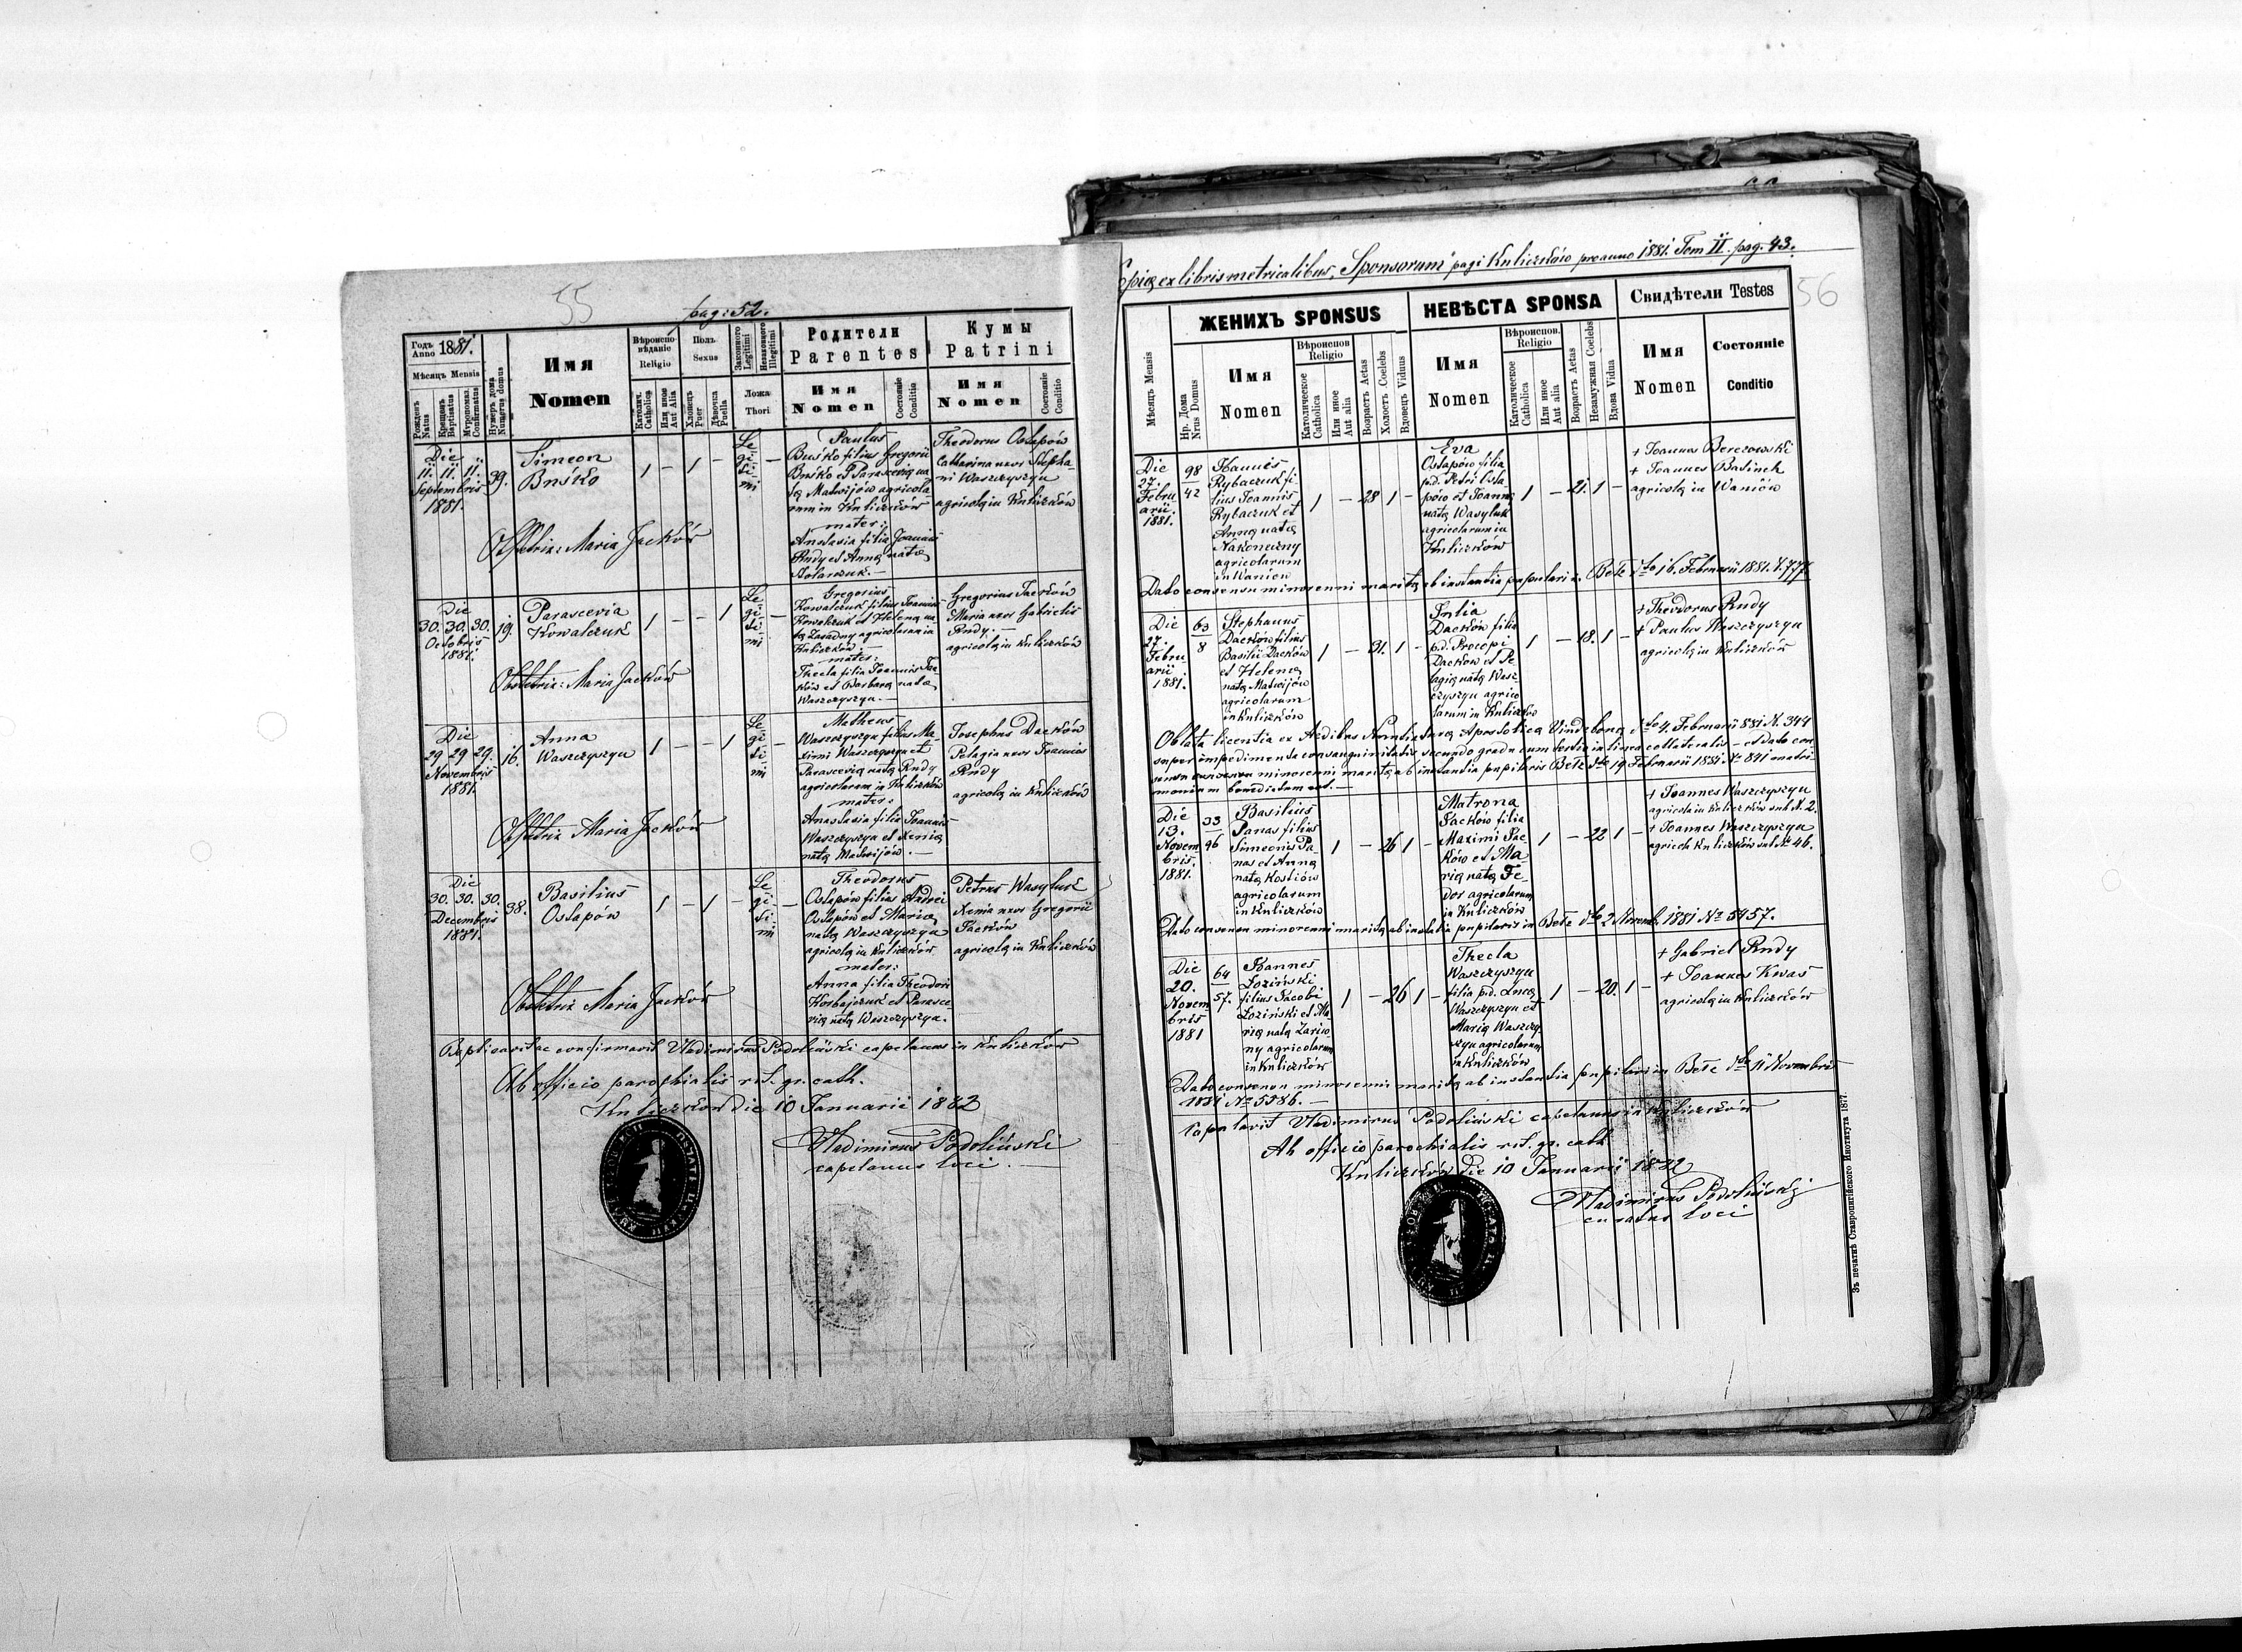 55
pag: 52.
Годъ Anno 1881.
Мѣсяцъ Mensis
Рожденъ Natus
Крещенъ Baptisatus
Мѵропомаз. Confirmatus
Нумеръ дома Numerus domus
Имя
Nomen
Вѣроисповѣданіе
Religio
Католич. Catholica
Или иное Aut Alia
Полъ
Sexus
Хлопецъ Puer
Дѣвочка Puella
Законного Legitimi
Незаконного Illegitimi
Ложа
Thori
Родители
Parentes
Имя
Nomen
Состояніе
Conditio
Кумы
Patrini
Имя
Nomen
Состояніе
Conditio
Die
11. 11. 11.
Septembris
1881.
39.
Simeon
Buśko
1 - 1 -
Legitimi
Paulus
Buśko filius Gregorii
Buśko et Parascevię na
tę Matwijów agricola
rum in Kuliczków
mater:
Anastasia filia Joannis
Rudy et Annę natę
Stolarczuk. —
Theodorus Ostapów
Catharina uxor Stepha
ni Waszczyszyn
agricolę in Kuliczków
Obstetrix: Maria Jacków
Die
30. 30. 30.
Octobris
1881.
19.
Parascevia
Kowalczuk
1 - - 1
Legitimi
Gregorius
Kowalczuk filius Joannis
Kowalczuk et Helenę na
tę Zasadny agricolarum in
Kuliczków
mater:
Thecla filia Joannis Jac
ków et Barbarę natę
Waszczyszyn. —
Gregorius Jacków
Maria uxor Gabrielis
Rudy. —
agricolę in Kuliczków
Obstetrix: Maria Jacków
Die
29. 29. 29.
Novembris
1881.
16.
Anna
Waszczyszyn
1 - - 1
Legitimi
Matheus
Waszczyszyn filius Ma
ximi Waszczyszyn et
Parascevię natę Rudy
agricolarum in Kuliczków
mater:
Anastasia filia Joannis
Waszczyszyn et Xenię
natę Matwijów. —
Josephus Dacków
Pelagia uxor Joannis
Rudy
agricolę in Kuliczków
Obstetrix Maria Jacków
Die
30. 30. 30.
Decembris
1881.
38.
Basilius
Ostapów
1 - 1 -
Legitimi
Theodorus
Ostapów filius Andrei
Ostapów et Marię
natę Waszczyszyn
agricolę in Kuliczków
mater:
Anna filia Theodori
Korbajczuk et Parasce
vię natę Waszczyszyn.
Petrus Wasyluk
Xenia uxor Gregorii
Jacków
agricolę in Kuliczków
Obstetrix Maria Jacków
Baptisavit ac confirmavit Vladimirus Podoliński capelanus in Kuliczków
Ab officio parochialis rit. gr. cath.
Kuliczków die 10 Januarii 1882
Vladimirus Podoliński
capelanus loci. —
56
Copię ex libris metricalibus „Sponsorum" pagi Kuliczków pro anno 1881. Tom II. pag. 43.
Мѣсяцъ Mensis
ЖЕНИХЪ SPONSUS
Нр. Дома Nrus Domus
Имя
Nomen
Вѣроиспов
Religio
Католическое Catholica
Или иное Aut alia
Возрастъ Aetas
Холостъ Coelebs
Вдовецъ Viduus
НЕВѢСТА SPONSA
Имя
Nomen
Вѣроиспов.
Religio
Католическое Catholica
Или иное Aut alia
Возрастъ Aetas
Незамужная Coelebs
Вдова Vidua
Свидѣтели Testes
Имя
Nomen
Состояніе
Conditio
Die
27.
Febru
arii.
1881.
98
42
Joannes
Rybaczuk fi
lius Joannis
Rybaczuk et
Annę natę
Nakoneczny
agricolarum
in Waniów
1 - 28 1 -
Eva
Ostapów filia
p.d. Petri Osta
pów et Joannę
natę Wasyluk
agricolarum in
Kuliczków
1 - 21. 1 -
+ Joannes Berezowski
+ Joannes Basinek
agricolę in Waniów
Dato consensu minorenni maritę ab instantia pupilari in Bełz dto 16. Februarii 1881. N. 777.
Die
27.
Febru
arii
1881.
63
8
Stephanus
Dacków filius
Basilii Dacków
et Helenę
natę Matwijów
agricolarum
in Kuliczków
1 - 31. 1 -
Julia
Dacków filia
p.d. Procopi
Dacków et Pe
lagię natę Wasz
czyszyn agrico
larum in Kuliczków
1 - 18. 1 -
+ Theodorus Rudy
+ Paulus Waszczyszyn
agricolę in Kuliczków
Oblata licentia ex Aedibus Nuntiaturę Apostolicę Vindobonę dto 4. Februarii 881 N. 344
super impedimento consanguinitatis secundo gradu cum tertio in linea collateralis — et dato con
sensu minorenni maritę ab instantia pupilaris Bełz dto 19 Februarii 1881 N. 841 matri
monium benedictum est. —
Die
13.
Novem
bris.
1881.
33
96
Basilius
Panas filius
Simeonis Pa
nas et Annę
natę Kostiów
agricolarum
in Kuliczków
1 - 26 1 -
Matrona
Jacków filia
Maximi Jac
ków et Ma
rię natę Fe
dor agricolarum
in Kuliczków
1 - 22 1 -
+ Joannes Waszczyszyn
agricola in Kuliczków sub N. 2.
+ Joannes Waszczyszyn
agricola Kuliczków sub No 46.
Dato consensu minorenni maritę ab instantia pupilaris in Bełz dto 2 Novemb. 1881 No 5457.
Die
20.
Novem
bris
1881
64
57.
Joannes
Łoziński
filius Jacobi
Łoziński et Ma
rię natę Zarico
ny agricolarum
in Kuliczków
1 - 26 1 -
Thecla
Waszczyszyn
filia p.d. Lucę
Waszczyszyn et
Marię Waszczy
szyn agricolarum
in Kuliczków
1 - 20. 1 -
+ Gabriel Rudy
+ Joannes Kwas
agricolę in Kuliczków
Dato consensu minorenni maritę ab instantia pupilari in Bełz dto 11 Novembris
1881 No 5586. —
Copulavit Vladimirus Podoliński capelanus in Kuliczków
Ab officio parochialis rit. gr. cath
Kuliczków Die 10 Januarii 1882
Vladimirus Podoliński
curatus loci
Зъ печатнѣ Ставропигійского Института 1877.